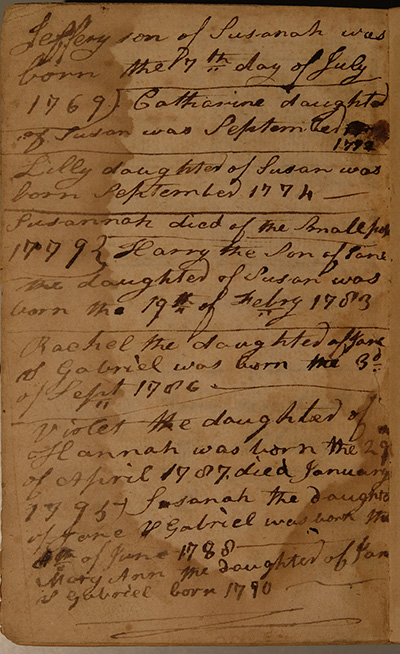 Jeffery son of Susanah was
born the 7th day of July
1769} Catharine daughter
of Susan was September
1772
Lilly daughter of Susan was
born September 1774
Susannah died of the Small pox
1779} Harry the Son of Jane
the daughter of Susan was
born the 19th of Febry 1783
Rachel the daughter of Jane
& Gabriel was born the 3d
of Sept 1786
Violet the daughter of
Hannah was born the 29
of April 1787. died January
1795} Susanah the daughter
of Jane & Gabriel was born the
of June 1788
Mary Ann the daughter of Jane
& Gabriel born 1790